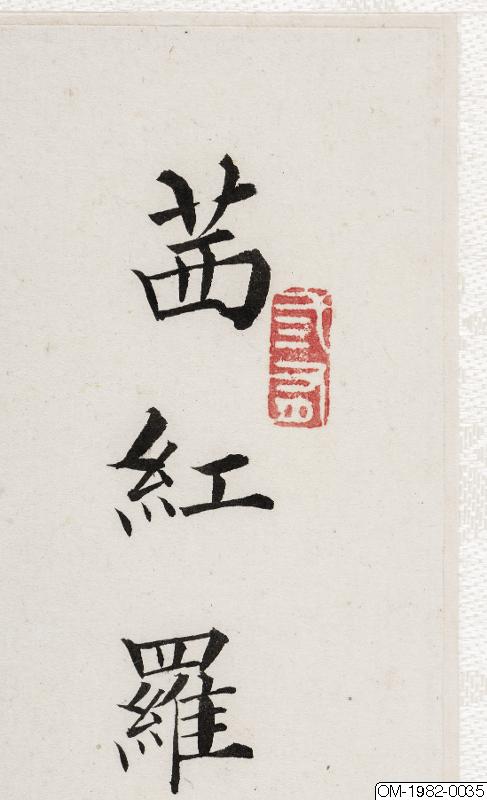 茜紅羅
OM-1982-0035